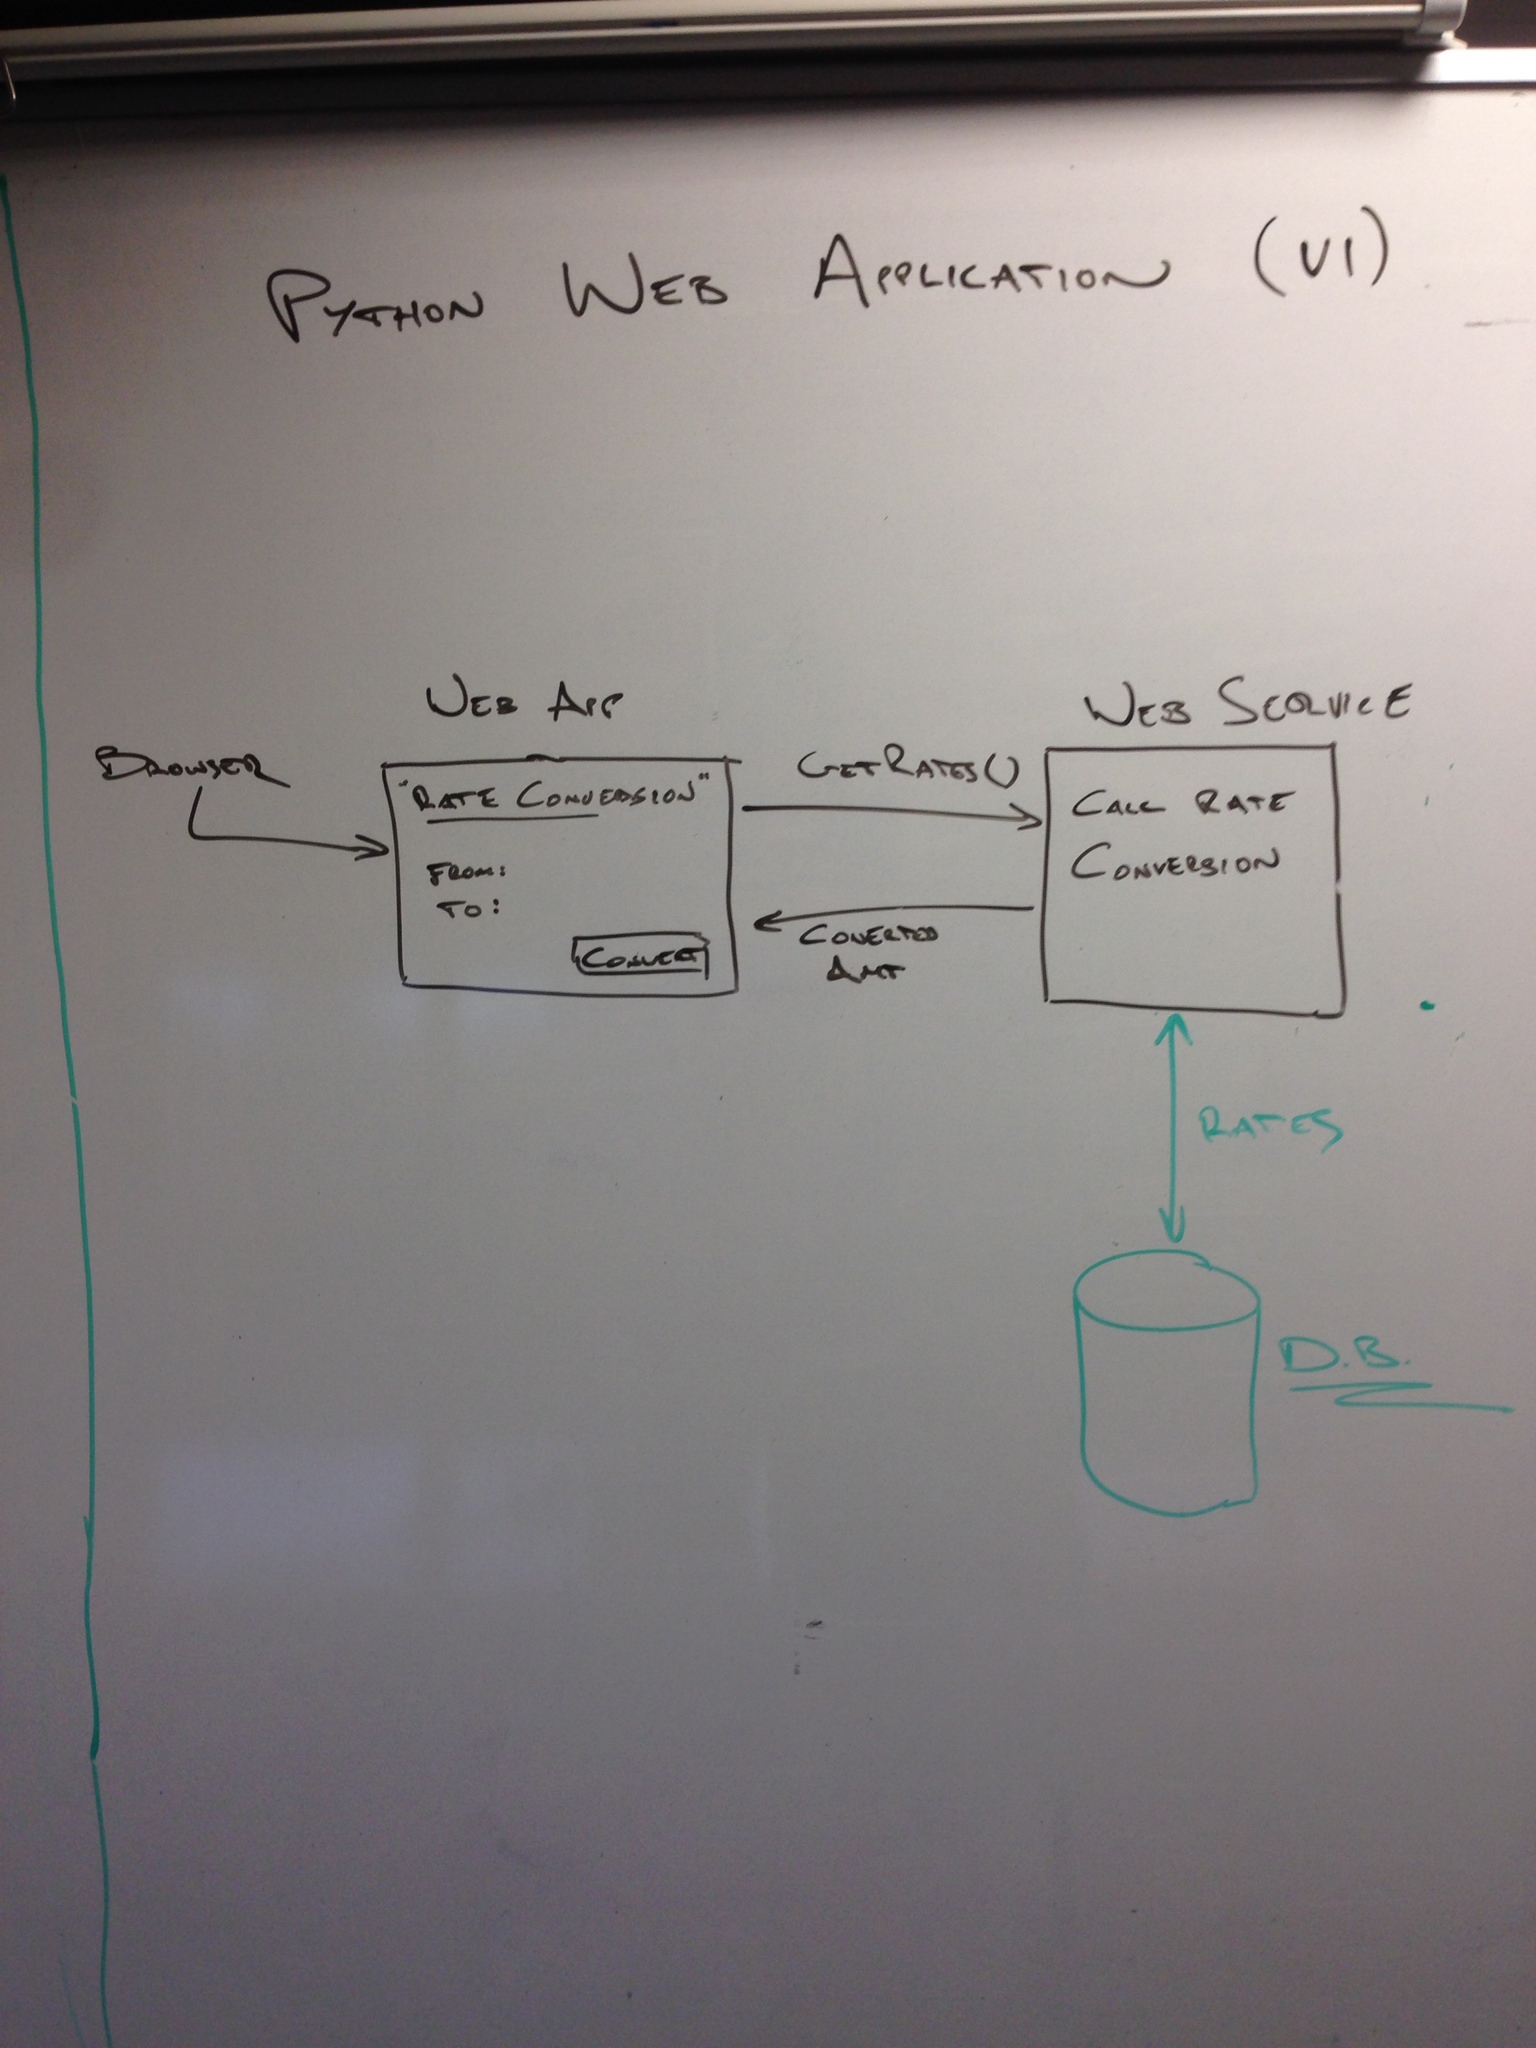 PYTHON WEB APPLICATION (V1)
WEB APP
WEB SERVICE
BROWSER
"RATE CONVERSION"
FROM:
TO:
CONVERT
GETRATES()
CONERTED
AMT
CALL RATE
CONVERSION
RATES
D.B.